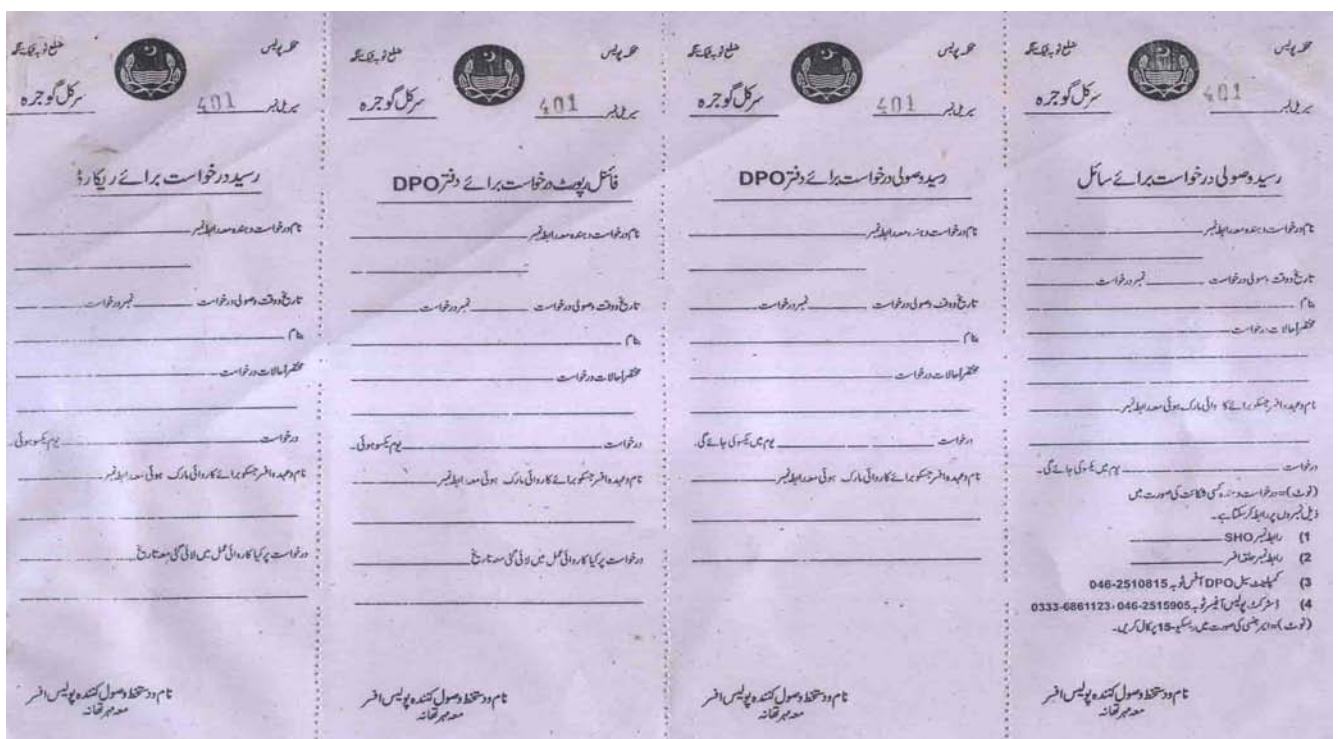 محکمہ پولیس
ضلع ٹوبہ ٹیک سنگھ
سیریل نمبر 401
سرکل گوجرہ
رسید وصولی درخواست برائے سائل
نام درخواست دہندہ معہ رابطہ نمبر
تاریخ و وقت وصولی درخواست نمبر درخواست
بنام
مختصراً حالات درخواست
نام و عہدہ افسر جسکو برائے کاروائی مارک ہوئی معہ رابطہ نمبر
درخواست یوم میں یکسو کی جائے گی۔
(نوٹ)=درخواست دہندہ کسی شکائت کی صورت میں
ذیل نمبروں پر رابطہ کر سکتا ہے۔
(1 رابطہ نمبر SHO
(2 رابطہ نمبر حلقہ افسر
(3 کمپلینٹ سیل DPO آفس ٹوبہ 046-2510815
(4 ڈسٹرکٹ پولیس آفیسر ٹوبہ 046-2515905، 0333-6861123
(نوٹ)=ایمرجنسی کی صورت میں ریسکیو-15 پر کال کریں۔
نام و دستخط وصول کنندہ پولیس افسر
معہ مہر تھانہ
محکمہ پولیس
ضلع ٹوبہ ٹیک سنگھ
سیریل نمبر 401
سرکل گوجرہ
رسید وصولی درخواست برائے دفتر DPO
نام درخواست دہندہ معہ رابطہ نمبر
تاریخ و وقت وصولی درخواست نمبر درخواست
بنام
مختصراً حالات درخواست
درخواست یوم میں یکسو کی جائے گی۔
نام و عہدہ افسر جسکو برائے کاروائی مارک ہوئی معہ رابطہ نمبر
نام و دستخط وصول کنندہ پولیس افسر
معہ مہر تھانہ
محکمہ پولیس
ضلع ٹوبہ ٹیک سنگھ
سیریل نمبر 401
سرکل گوجرہ
فائنل رپورٹ درخواست برائے دفتر DPO
نام درخواست دہندہ معہ رابطہ نمبر
تاریخ و وقت وصولی درخواست نمبر درخواست
بنام
مختصراً حالات درخواست
درخواست یوم یکسو ہوئی۔
نام و عہدہ افسر جسکو برائے کاروائی مارک ہوئی معہ رابطہ نمبر
درخواست پر کیا کاروائی عمل میں لائی گئی معہ تاریخ
نام و دستخط وصول کنندہ پولیس افسر
معہ مہر تھانہ
محکمہ پولیس
ضلع ٹوبہ ٹیک سنگھ
سیریل نمبر 401
سرکل گوجرہ
رسید درخواست برائے ریکارڈ
نام درخواست دہندہ معہ رابطہ نمبر
تاریخ و وقت وصولی درخواست نمبر درخواست
بنام
مختصراً حالات درخواست
درخواست یوم یکسو ہوئی۔
نام و عہدہ افسر جسکو برائے کاروائی مارک ہوئی معہ رابطہ نمبر
درخواست پر کیا کاروائی عمل میں لائی گئی معہ تاریخ
نام و دستخط وصول کنندہ پولیس افسر
معہ مہر تھانہ